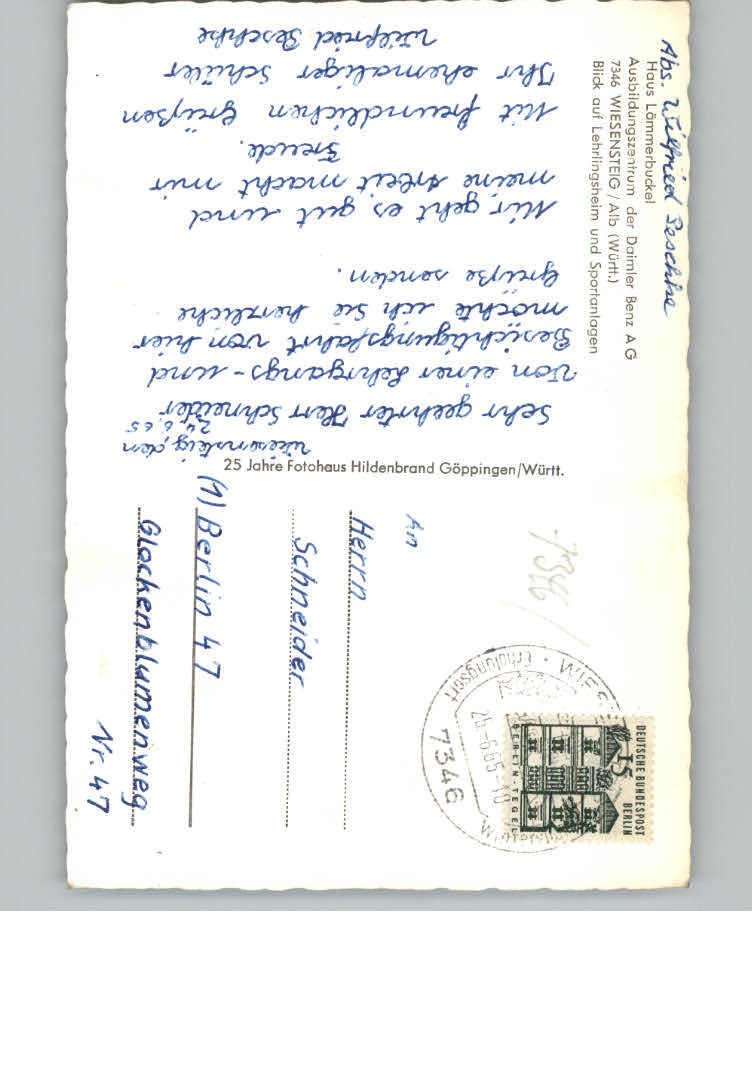 Abs. Wilfried Peschke
Haus Lämmerbuckel
Ausbildungszentrum der Daimler Benz A G
7346 WIESENSTEIG / Alb (Württ.)
Blick auf Lehrlingsheim und Sportanlagen
Wiesensteig, den
24.6.65
Sehr geehrter Herr Schneider
Von einer Lehrgangs- und
Besichtigungsfahrt von hier
möchte ich Sie herzliche
Grüße senden.
Mir geht es gut und
meine Arbeit macht mir
Freude.
Mit freundlichen Grüßen
Ihr ehemaliger Schüler
Wilfried Peschke
25 Jahre Fotohaus Hildenbrand Göppingen/Württ.
7346
An
Herrn
Schneider
(1) Berlin 47
Glockenblumenweg
Nr. 47
DEUTSCHE BUNDESPOST
BERLIN
15
BERLIN-TEGEL
WIESE
Erholungsort
7346
-6.65-10